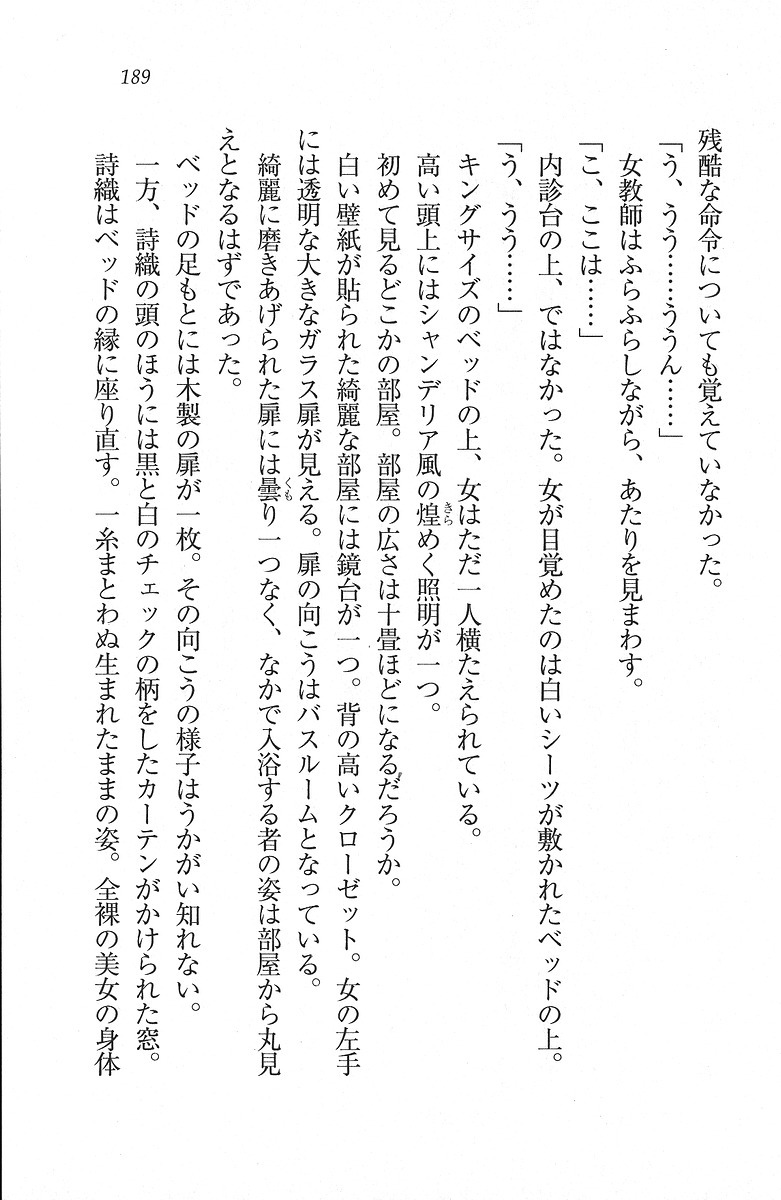 189
残酷な命令についても覚えていなかった。
「う、うう……ううん……」
女教師はふらふらしながら、あたりを見まわす。
「こ、ここは……」
内診台の上、ではなかった。女が目覚めたのは白いシーツが敷かれたベッドの上。
「う、うう……」
キングサイズのベッドの上、女はただ一人横たえられている。
高い頭上にはシャンデリア風の煌めく照明が一つ。
初めて見るどこかの部屋。部屋の広さは十畳ほどになるだろうか。
白い壁紙が貼られた綺麗な部屋には鏡台が一つ。背の高いクローゼット。女の左手
には透明な大きなガラス扉が見える。扉の向こうはバスルームとなっている。
綺麗に磨きあげられた扉には曇り一つなく、なかで入浴する者の姿は部屋から丸見
えとなるはずであった。
ベッドの足もとには木製の扉が一枚。その向こうの様子はうかがい知れない。
一方、詩織の頭のほうには黒と白のチェックの柄をしたカーテンがかけられた窓。
詩織はベッドの縁に座り直す。一糸まとわぬ生まれたままの姿。全裸の美女の身体